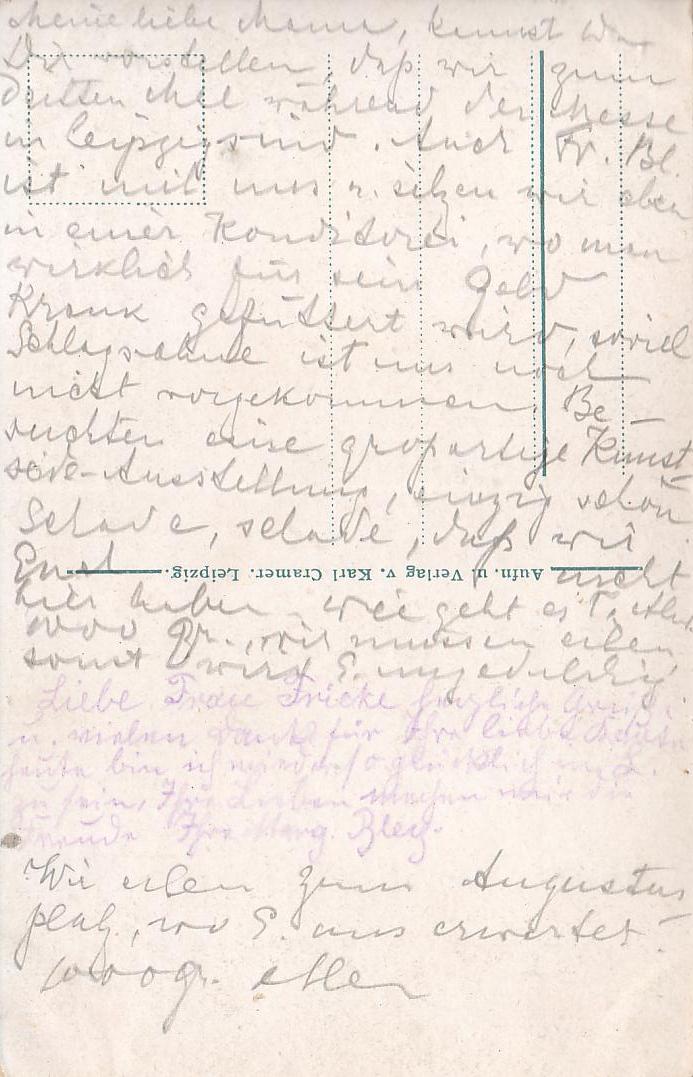 Meine liebe Mama, kannst Du
Dir vorstellen, daß wir zum
dritten Mal während der Messe
in Leipzig sind. Auch Fr. Bl.
ist mit uns u. sitzen wir eben
in einer Konditorei, wo man
wirklich für sein Geld
Krank gefüttert wird, soviel
Schlagsahne ist uns noch
nicht vorgekommen. Be-
suchten eine großartige Kunst
seide-Ausstellung, einzig schön.
Schade, schade, daß wir
Euch nicht
Aufn. u. Verlag v. Karl Cramer. Leipzig.
hier haben wie geht es
1000 Gr., wir müssen eilen,
sonst wird E. ungeduldig
Liebe Frau Fricke herzliche Grüße
u. vielen Dank für Ihre liebe Karte
heute bin ich wieder so glücklich
zu sein, Ihre Lieben machen mir die
Freude Ihre Marg. Bley.
Wir eilen zum Augustus
platz, wo E. uns erwartet.
1000 gr.